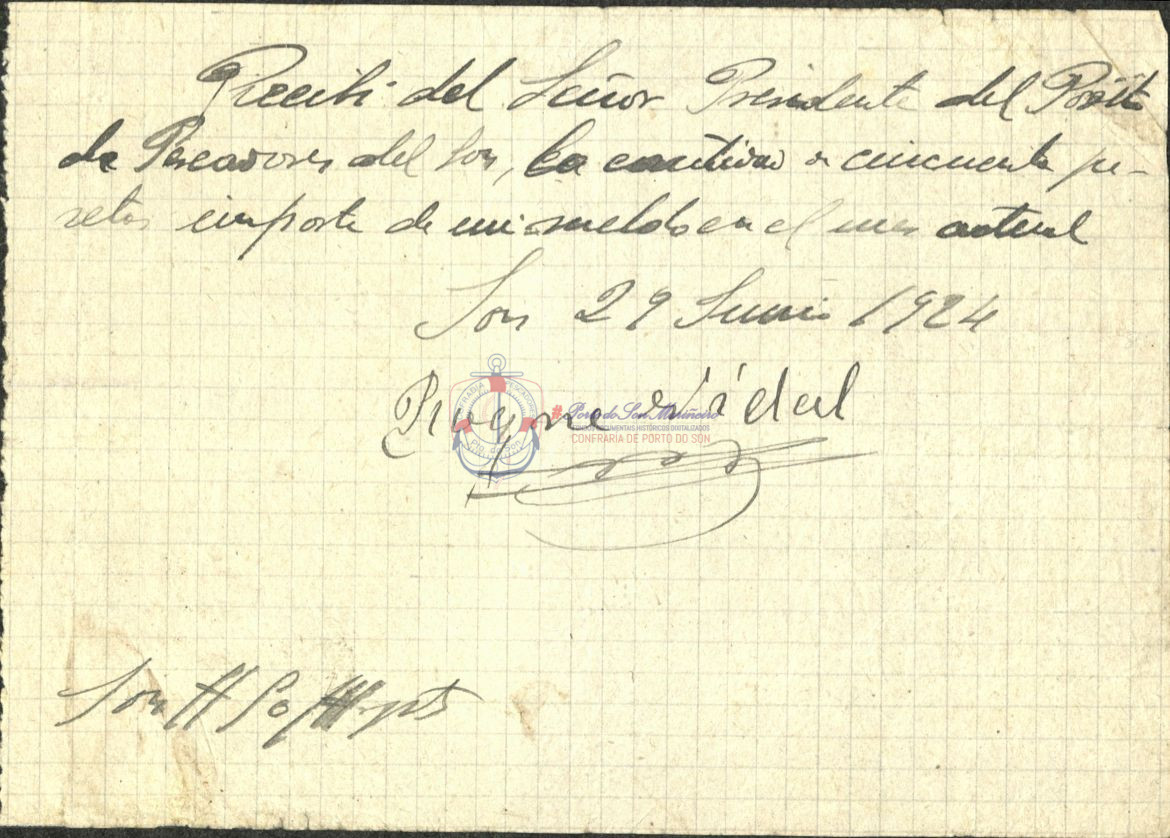 Recibi del Señor Presidente del Posito
de Pescadores del Son, la cantidad de cincuenta pe-
setas importe de mi sueldo en el mes actual
Son 29 Junio 1924
Vidal
#Porto do Son Mariñeiro
DOCUMENTAIS HISTÓRICOS DIGITALIZADOS
CONFRARÍA DE PORTO DO SON
Son # 50 # pts